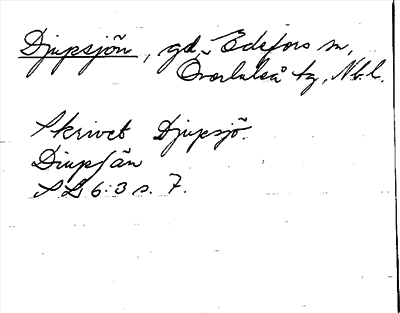 Djupsjön, gd, Edefors sn,
Överluleå tg, Nb.l.
Skrivet Djupsjö.
Diupsän
SL 6:3 s. 7.